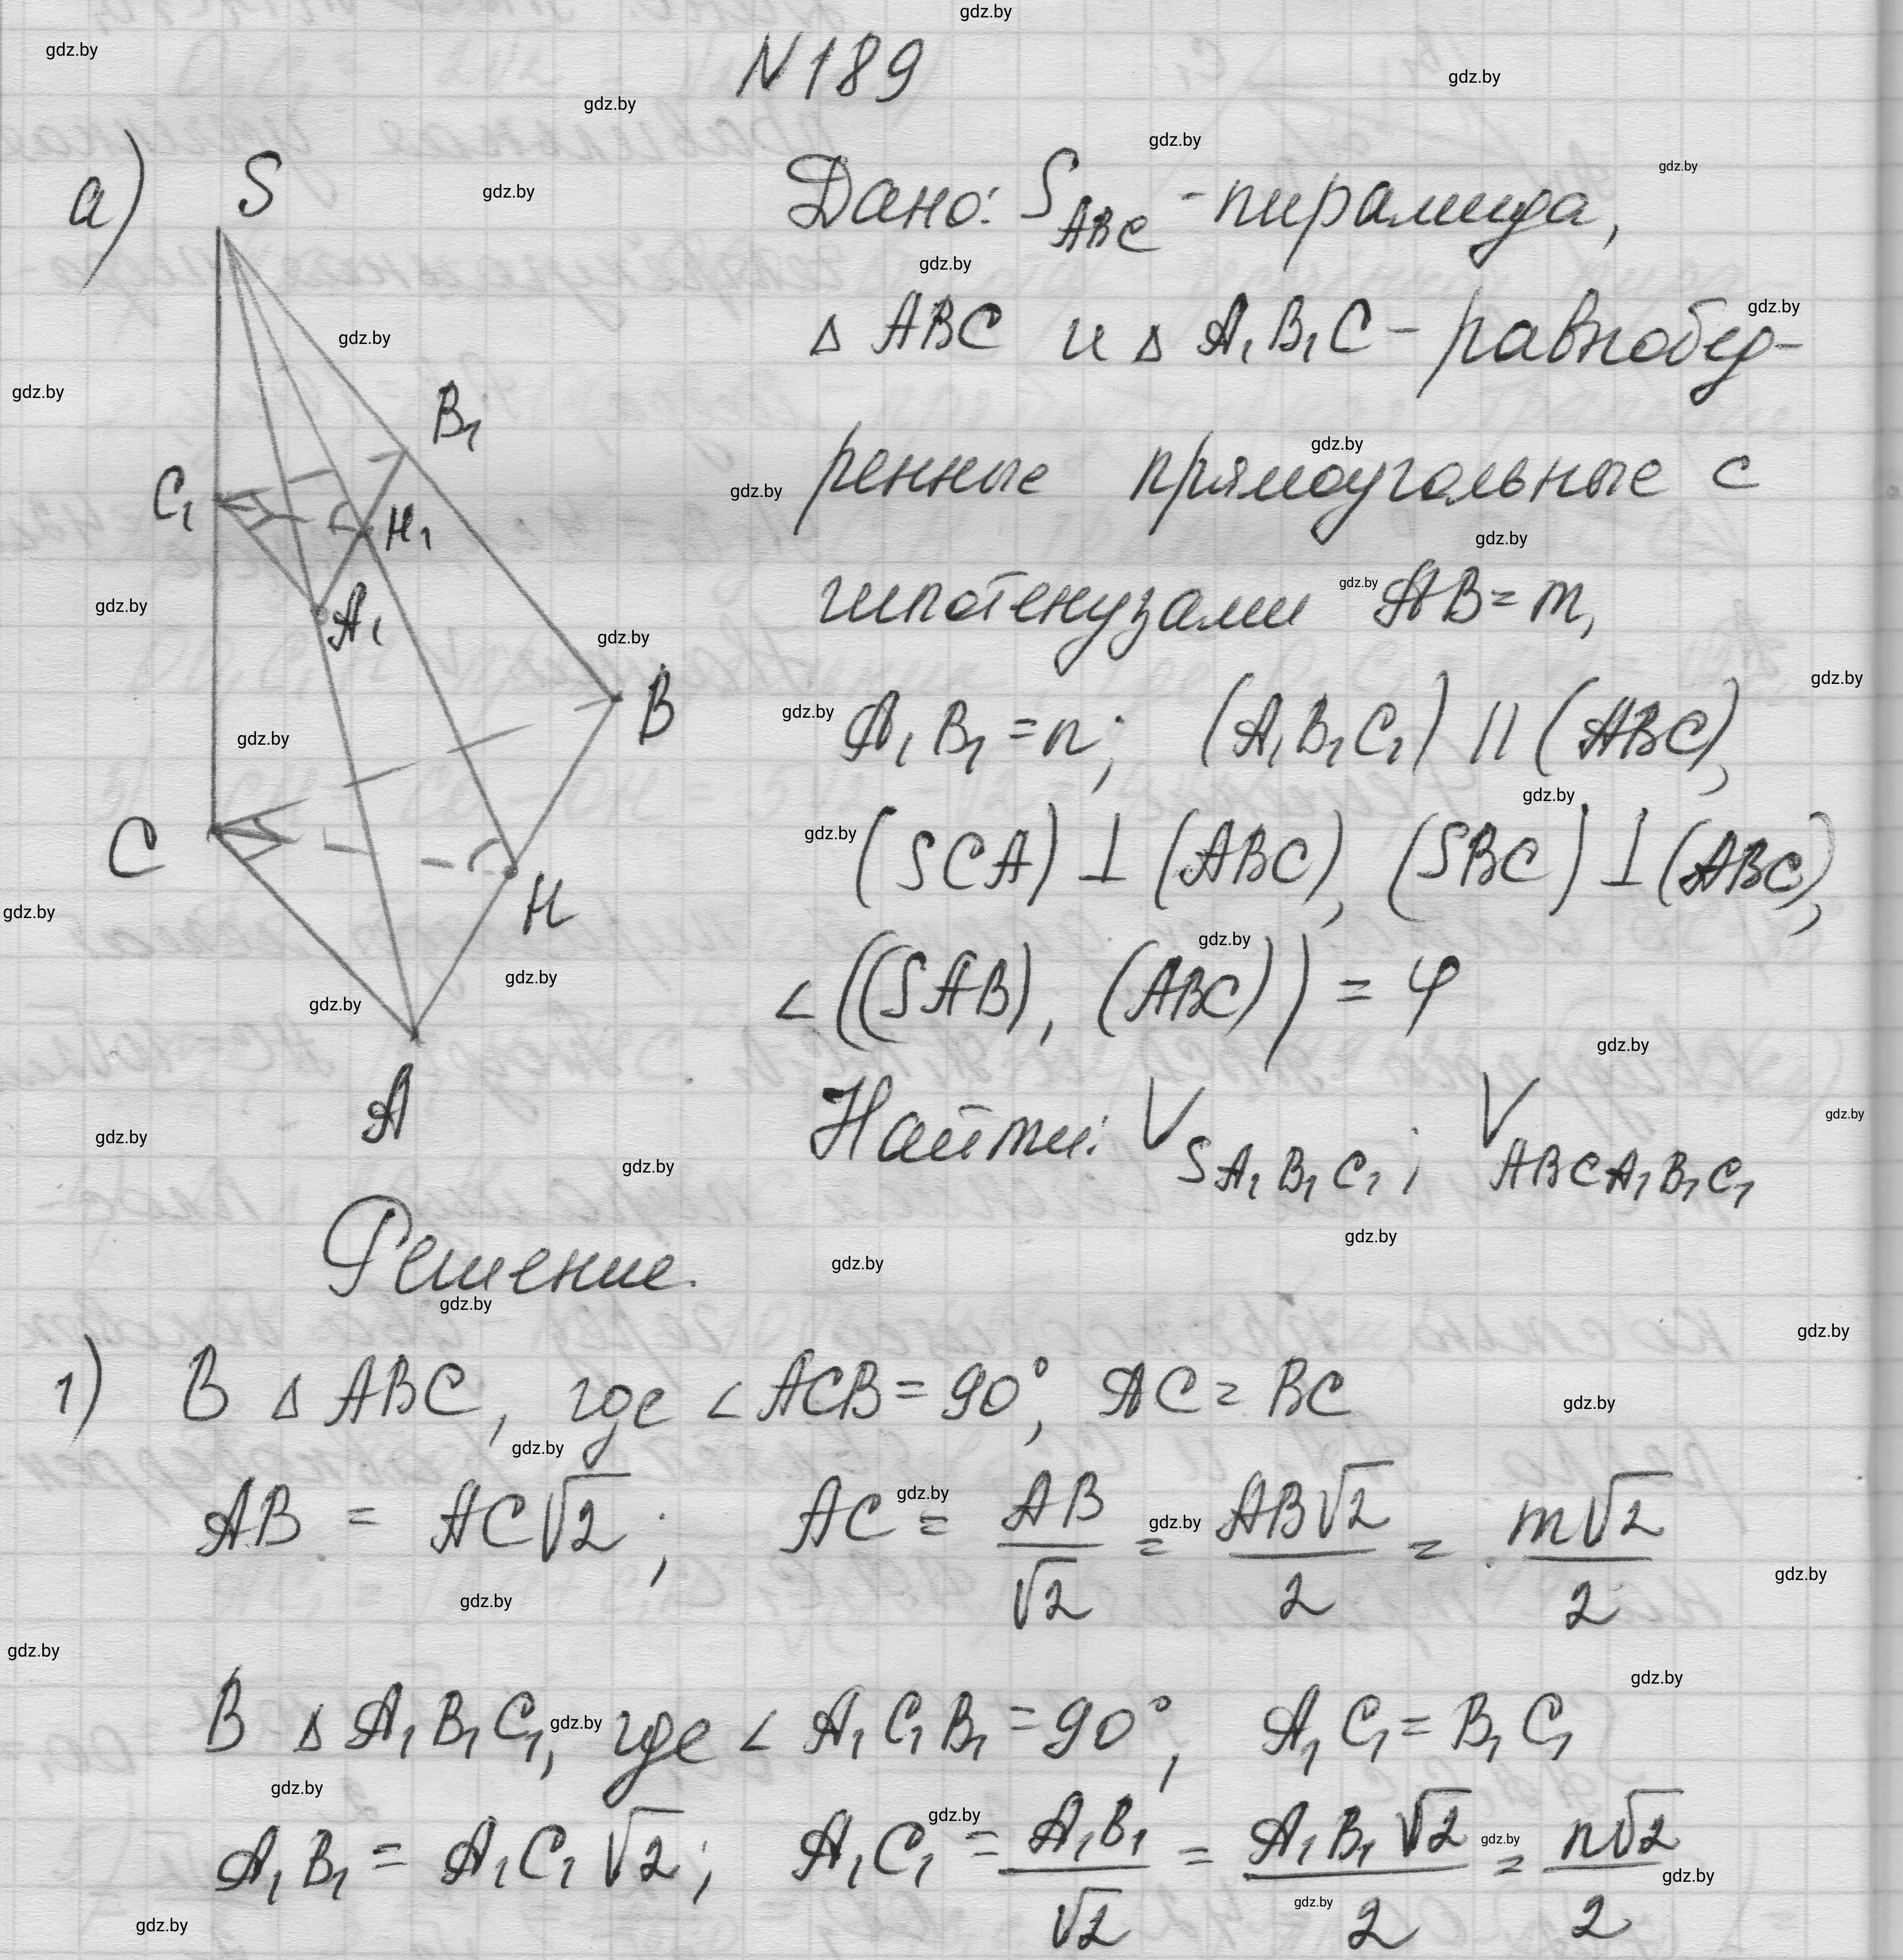 N189
а)
S
B₁
C₁
H₁
A₁
B
C
H
A
Дано: S_ABC - пирамида,
△ ABC и △ A₁B₁C - равнобед-
ренные прямоугольные с
гипотенузами AB = m,
A₁B₁ = n; (A₁B₁C₁) || (ABC),
(SCA) ⊥ (ABC), (SBC) ⊥ (ABC),
∠((SAB), (ABC)) = φ
Найти: V_SA₁B₁C₁; V_ABCA₁B₁C₁
Решение.
1) В △ ABC, где ∠ACB = 90°, AC = BC
AB = AC√2; AC = AB/√2 = AB√2/2 = m√2/2
В △ A₁B₁C₁, где ∠A₁C₁B₁ = 90°, A₁C₁ = B₁C₁
A₁B₁ = A₁C₁√2; A₁C₁ = A₁B₁/√2 = A₁B₁√2/2 = n√2/2
gdz.by